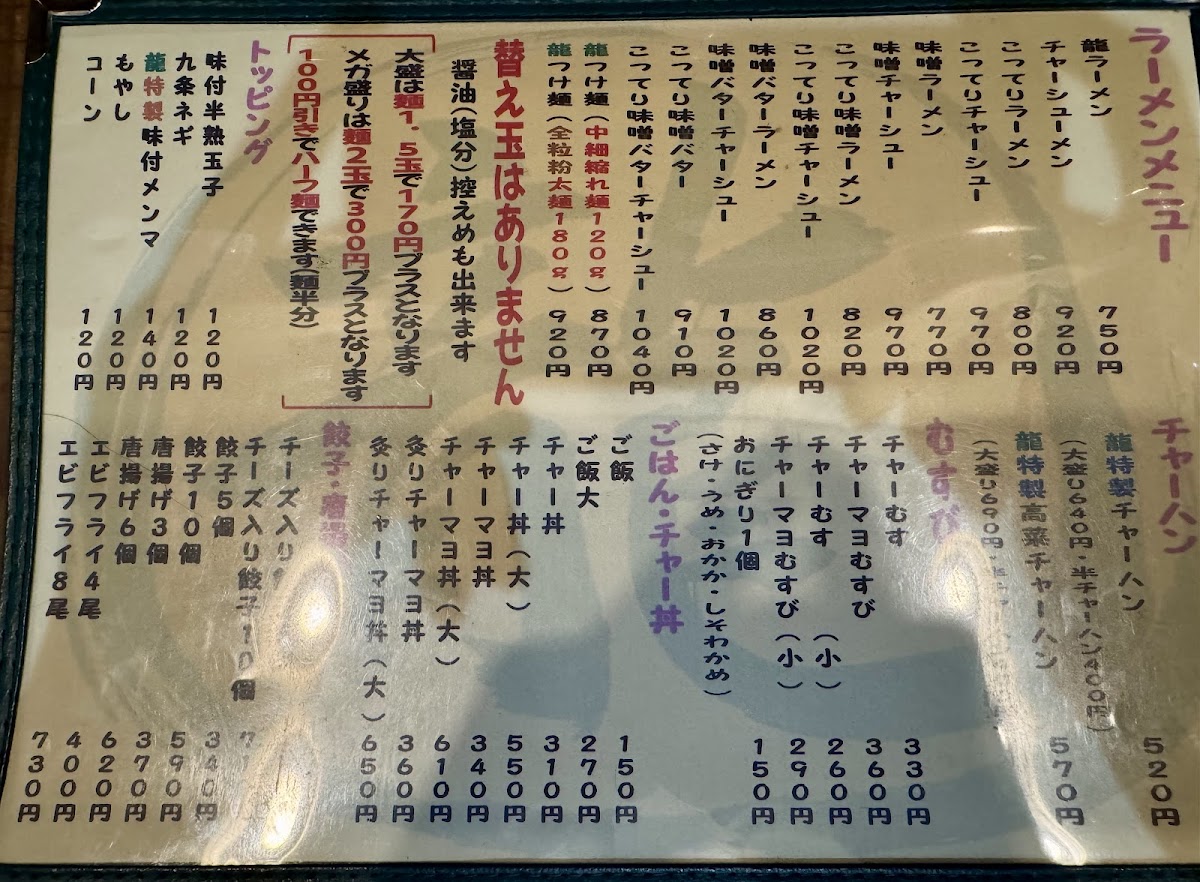 ラーメンメニュー
龍ラーメン 750円
チャーシューメン 920円
こってりラーメン 800円
こってりチャーシュー 970円
味噌ラーメン 770円
味噌チャーシュー 970円
こってり味噌ラーメン 820円
こってり味噌チャーシュー 1020円
味噌バターラーメン 860円
味噌バターチャーシュー 1020円
こってり味噌バター 910円
こってり味噌バターチャーシュー 1040円
龍つけ麺(中細縮れ麺120g) 870円
龍つけ麺(全粒粉太麺180g) 920円
替え玉はありません
醤油(塩分)控えめも出来ます
大盛は麺1.5玉で170円プラスとなります
メガ盛りは麺2玉で300円プラスとなります
100円引きでハーフ麺できます(麺半分)
トッピング
味付半熟玉子 120円
九条ネギ 120円
龍特製味付メンマ 140円
もやし 120円
コーン 120円
チャーハン
龍特製チャーハン 520円
(大盛り640円・半チャーハン400円)
龍特製高菜チャーハン 570円
(大盛り690円・半チャー
むすび
チャーむす 330円
チャーマヨむすび 360円
チャーむす(小) 260円
チャーマヨむすび(小) 290円
おにぎり1個 150円
(さけ・うめ・おかか・しそわかめ)
ごはん・チャー丼
ご飯 150円
ご飯大 270円
チャー丼 310円
チャー丼(大) 550円
チャーマヨ丼 340円
チャーマヨ丼(大) 610円
炙りチャーマヨ丼 360円
炙りチャーマヨ丼(大) 650円
餃子・唐揚
チーズ入り
チーズ入り餃子10個
餃子5個 340円
餃子10個 590円
唐揚げ3個 370円
唐揚げ6個 620円
エビフライ4尾 400円
エビフライ8尾 730円